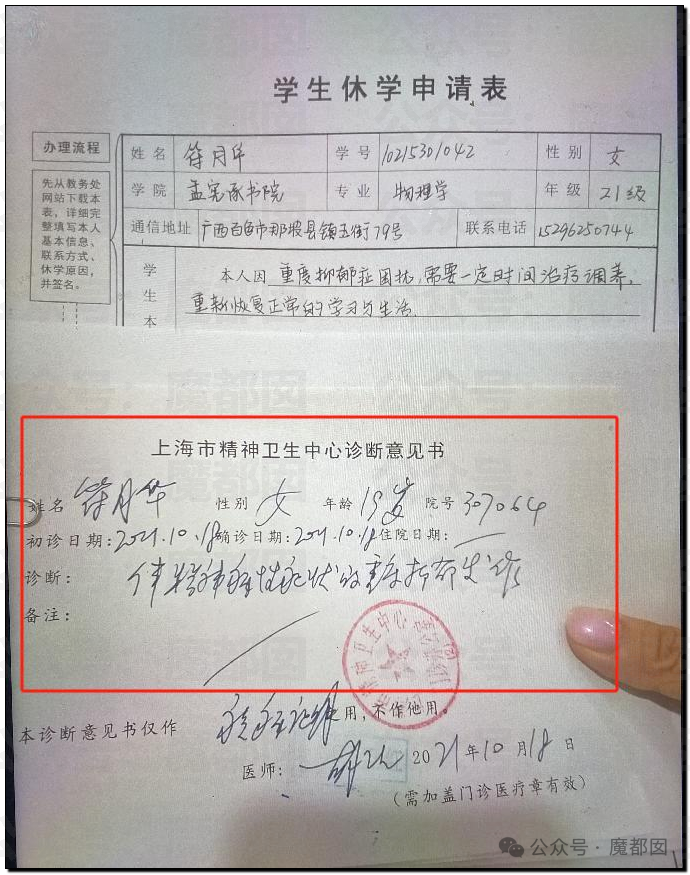 学生休学申请表
办理流程
先从教务处
网站下载本
表，详细完
整填写本人
基本信息、
联系方式、
休学原因，
并签名。
姓名 符月华 学号 10215301042 性别 女
学院 孟宪承书院 专业 物理学 年级 21级
通信地址 广西百色市那坡县镇玉街79号 联系电话 15296250744
学生本
本人因重度抑郁症困扰，需要一定时间治疗调养，
重新恢复正常的学习与生活
上海市精神卫生中心诊断意见书
姓名 符月华 性别 女 年龄 19岁 院号 307064
初诊日期：2021.10.18 确诊日期：2021.10.18 住院日期：
诊断： 伴精神病性症状的重度抑郁发作
备注：
本诊断意见书仅作 用，不作他用。
医师： 2021年10月18日
（需加盖门诊医疗章有效）
公众号·魔都囡